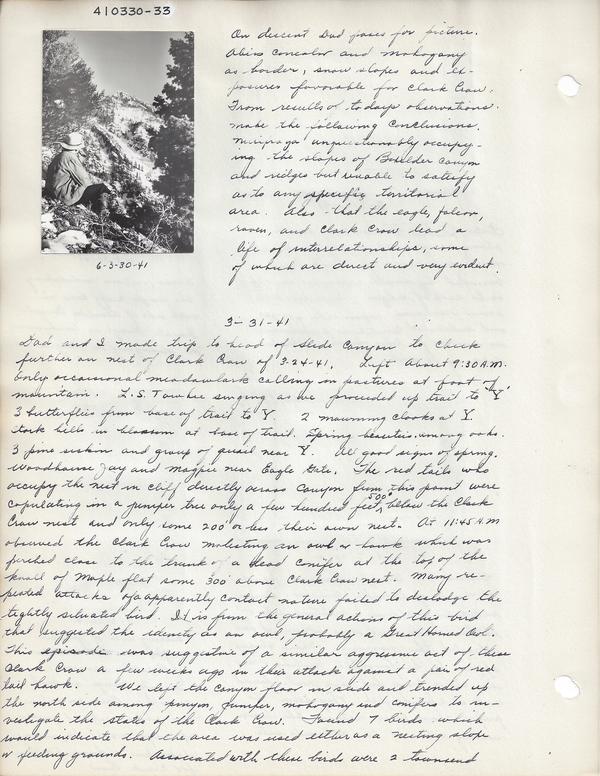 410330-33
On descent Dad poses for picture.
Abies concolor and mahogany
as border, snow slopes and ex-
posures favorable for Clark Crow.
From results of todays observations
make the following conclusions.
unquestionably occupy-
ing the slopes of Boulder Canyon
and ridges but unable to satisfy
as to any specific territorial
area. Also that the eagle, falcon,
raven, and Clark Crow lead a
life of interrelationships, some
of which are direct and very evident.
6-3-30-41
3-31-41
Dad and I made trip to head of Slide Canyon to check
further on nest of Clark Crow of 3-24-41. Left about 9:30 A.M.
Only occasional meadowlark calling on pastures at foot of
mountain. L.S. Towhee singing as we proceeded up trail to "Y"
3 butterflies from base of trail to Y. 2 mourning cloaks at Y.
Stork bills in blossom at base of trail. Spring beauties among oaks.
3 pine siskin and group of quail near Y. All good signs of spring.
Woodhouse Jay and magpie near Eagle Gate. The red tails who
occupy the nest in cliff directly across Canyon from this point were
copulating in a juniper tree only a few hundred feet, 500' below the Clark
Crow nest and only some 200' or less their own nest. At 11:45 A.M
observed the Clark Crow molesting an owl or hawk which was
perched close to the trunk of a dead conifer at the top of the
knoll of Maple flat some 300' above Clark Crow nest. Many re-
peated attacks of apparently contact nature failed to dislodge the
tightly situated bird. It is from the general actions of this bird
that suggested the identity as an owl, probably a Great Horned Owl.
This episode was suggestive of a similar aggressive act of these
Clark Crow a few weeks ago in their attack against a pair of red
tail hawk. We left the canyon floor in slide and trended up
the north side among pinyon, juniper, mahogany and conifers to in-
vestigate the status of the Clark Crow. Found 7 birds which
would indicate that the area was used either as a nesting slope
or feeding grounds. Associated with these birds were 2 townsend